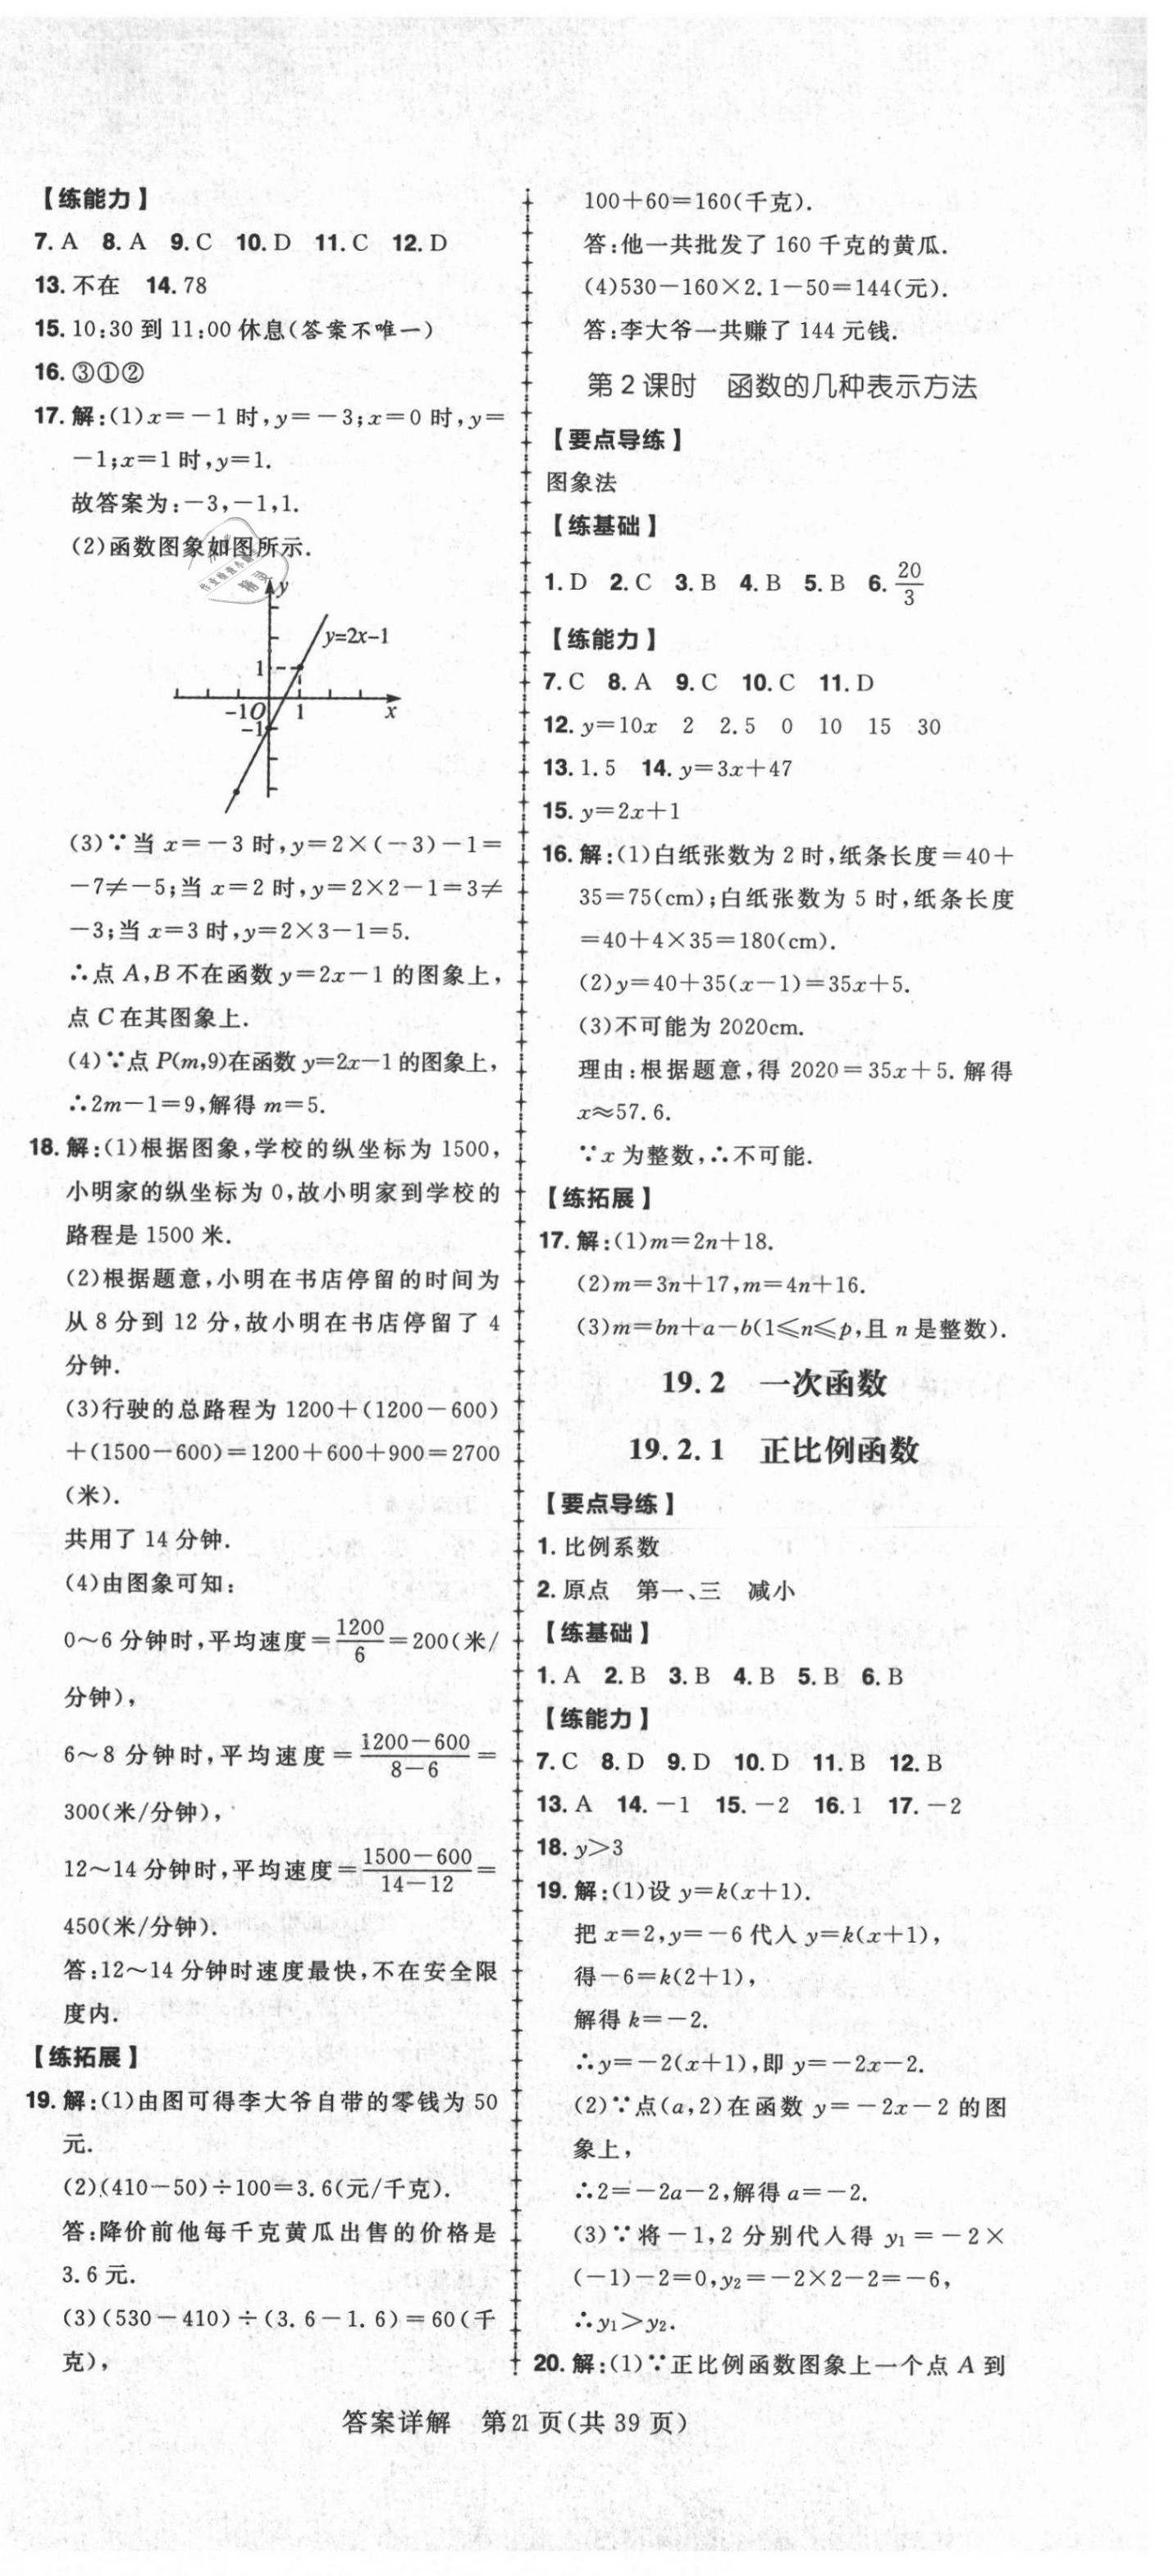 【练能力】
7. A 8. A 9. C 10. D 11. C 12. D
13. 不在 14. 78
15. 10:30 到 11:00 休息(答案不唯一)
16. ③①②
17. 解:(1)x=-1 时,y=-3;x=0 时,y=
-1;x=1 时,y=1.
故答案为:-3,-1,1.
(2)函数图象如图所示.
y
y=2x-1
1
-1 O 1 x
-1
(3)∵当 x=-3 时,y=2×(-3)-1=
-7≠-5;当 x=2 时,y=2×2-1=3≠
-3;当 x=3 时,y=2×3-1=5.
∴点 A,B 不在函数 y=2x-1 的图象上,
点 C 在其图象上.
(4)∵点 P(m,9)在函数 y=2x-1 的图象上,
∴2m-1=9,解得 m=5.
18. 解:(1)根据图象,学校的纵坐标为 1500,
小明家的纵坐标为 0,故小明家到学校的
路程是 1500 米.
(2)根据题意,小明在书店停留的时间为
从 8 分到 12 分,故小明在书店停留了 4
分钟.
(3)行驶的总路程为 1200+(1200-600)
+(1500-600)=1200+600+900=2700
(米).
共用了 14 分钟.
(4)由图象可知:
0~6 分钟时,平均速度=1200/6=200(米/
分钟),
6~8 分钟时,平均速度=(1200-600)/(8-6)=
300(米/分钟),
12~14 分钟时,平均速度=(1500-600)/(14-12)=
450(米/分钟).
答:12~14 分钟时速度最快,不在安全限
度内.
【练拓展】
19. 解:(1)由图可得李大爷自带的零钱为 50
元.
(2)(410-50)÷100=3.6(元/千克).
答:降价前他每千克黄瓜出售的价格是
3.6 元.
(3)(530-410)÷(3.6-1.6)=60(千
克),
100+60=160(千克).
答:他一共批发了 160 千克的黄瓜.
(4)530-160×2.1-50=144(元).
答:李大爷一共赚了 144 元钱.
第 2 课时 函数的几种表示方法
【要点导练】
图象法
【练基础】
1. D 2. C 3. B 4. B 5. B 6. 20/3
【练能力】
7. C 8. A 9. C 10. C 11. D
12. y=10x 2 2.5 0 10 15 30
13. 1.5 14. y=3x+47
15. y=2x+1
16. 解:(1)白纸张数为 2 时,纸条长度=40+
35=75(cm);白纸张数为 5 时,纸条长度
=40+4×35=180(cm).
(2)y=40+35(x-1)=35x+5.
(3)不可能为 2020cm.
理由:根据题意,得 2020=35x+5. 解得
x≈57.6.
∵x 为整数,∴不可能.
【练拓展】
17. 解:(1)m=2n+18.
(2)m=3n+17,m=4n+16.
(3)m=bn+a-b(1≤n≤p,且 n 是整数).
19.2 一次函数
19.2.1 正比例函数
【要点导练】
1. 比例系数
2. 原点 第一、三 减小
【练基础】
1. A 2. B 3. B 4. B 5. B 6. B
【练能力】
7. C 8. D 9. D 10. D 11. B 12. B
13. A 14. -1 15. -2 16. 1 17. -2
18. y>3
19. 解:(1)设 y=k(x+1).
把 x=2,y=-6 代入 y=k(x+1),
得-6=k(2+1),
解得 k=-2.
∴y=-2(x+1),即 y=-2x-2.
(2)∵点(a,2)在函数 y=-2x-2 的图
象上,
∴2=-2a-2,解得 a=-2.
(3)∵将-1,2 分别代入得 y₁=-2×
(-1)-2=0,y₂=-2×2-2=-6,
∴y₁>y₂.
20. 解:(1)∵正比例函数图象上一个点 A 到
答案详解 第21页(共 39 页)